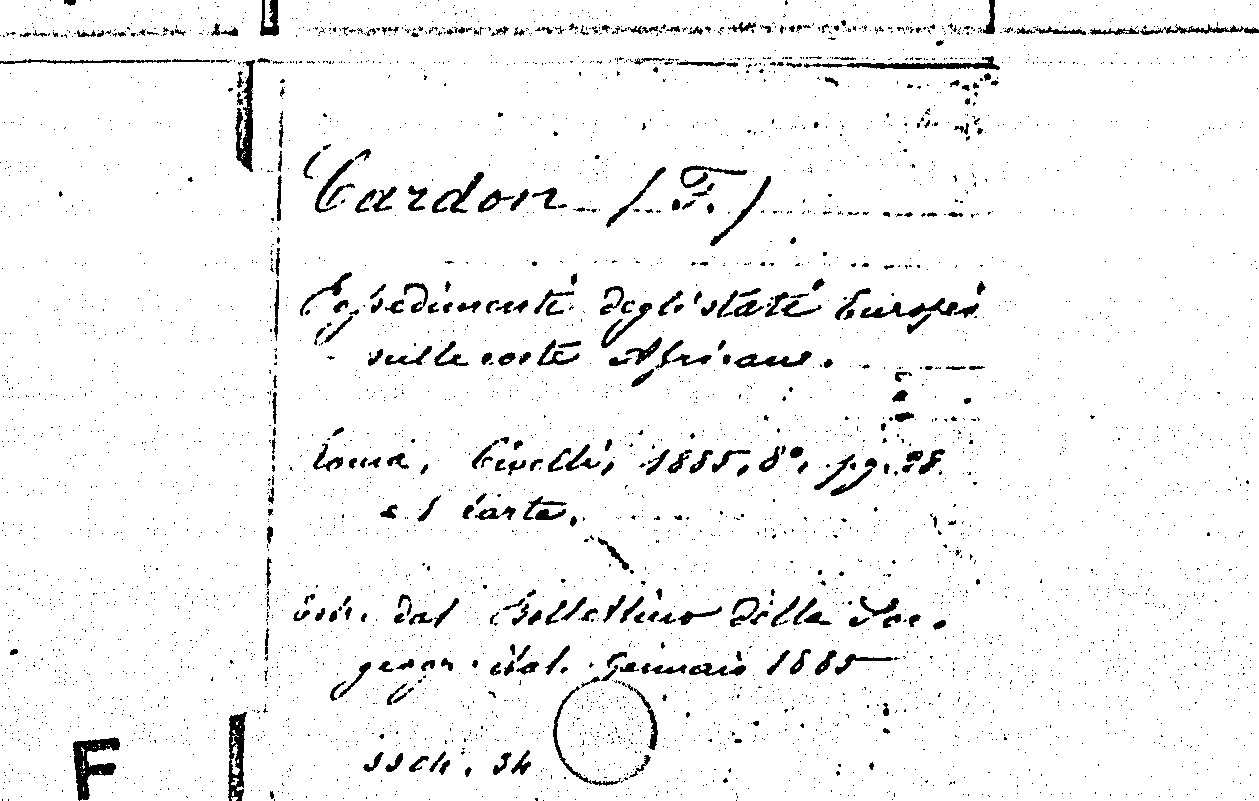 Cardon (F.)
Possedimenti degli stati Europei
sulle coste Africane.
Roma, Civelli, 1885, 8°, pg. 28
e 1 carta.
Estr. dal Bollettino della Soc.
geogr. ital. Gennaio 1885
F